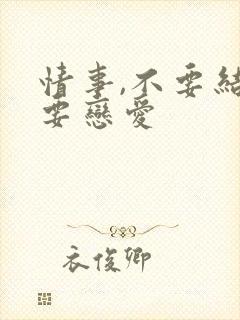 情事,不要結
要戀愛
衣俊卿